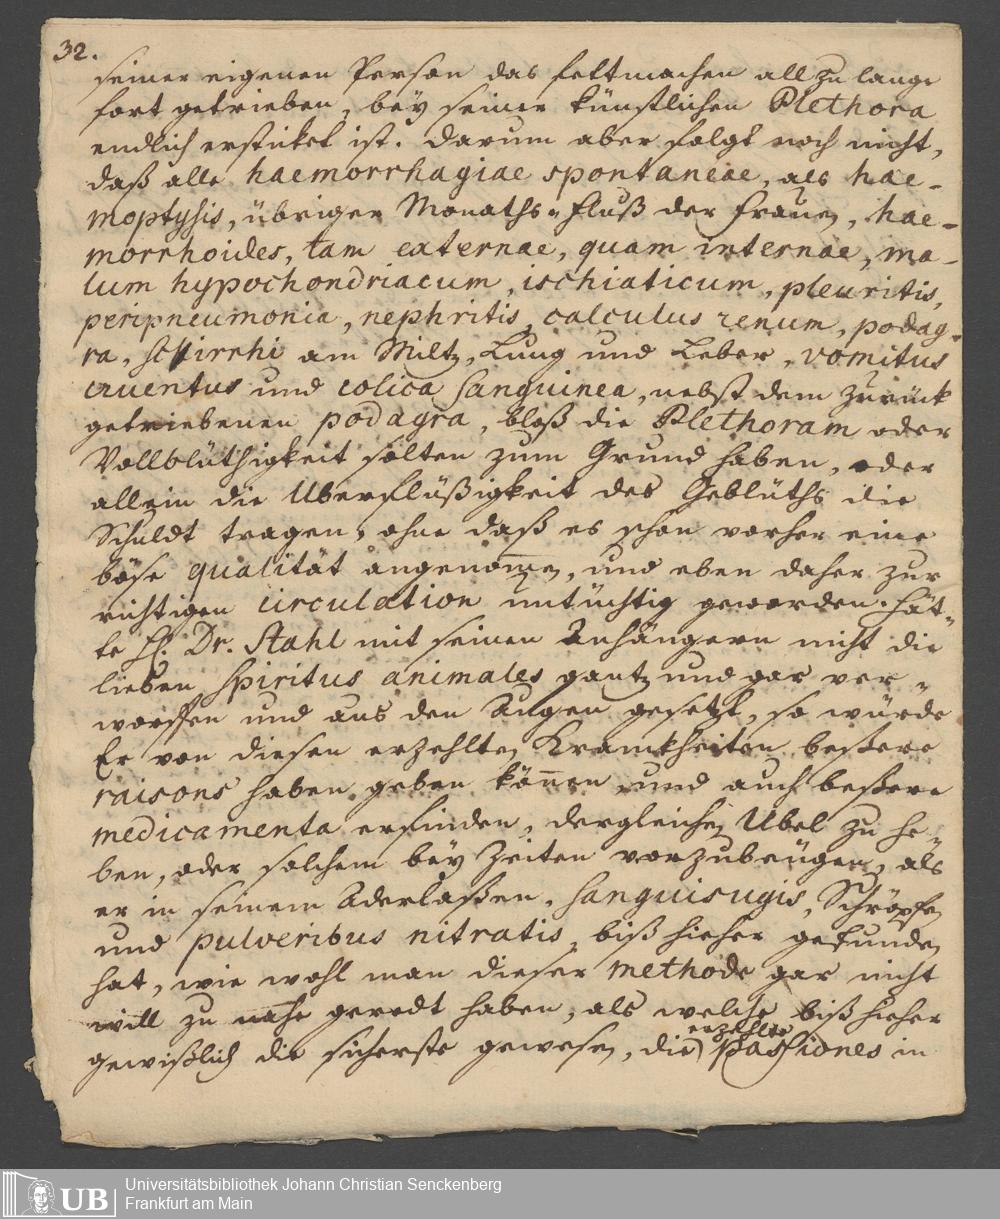 32.
seiner eigenen Person das fettmachen all zu lange
fort getrieben, beÿ seiner künstlichen Plethora
endlich ersticket ist. Darum aber folgt noch nicht,
daß alle haemorrhagiae spontaneae, als hae-
moptysis, übriger Monaths-Fluß der Frauen, hae-
morrhoides, tam externae, quam internae, ma-
lum hypochondriacum, ischiaticum, pleuritis,
peripneumonia, nephritis, calculus renum, podag-
ra, scirrhi am Miltz, Lung und Leber, vomitus
cruentus und colica sanguinea, nebst dem zurück
getriebenen podagra, bloß die Plethoram oder
Vollblüthigkeit solten zum Grund haben, oder
allein die Uberflüßigkeit des Geblüths die
Schuldt tragen, ohne daß es schon vorher eine
böse qualität angenom̅en, und eben daher zur
richtigen circulation untüchtig geworden. Hät-
te H. Dr. Stahl mit seinen Anhängern nicht die
lieben spiritus animales gantz und gar ver-
worffen und aus den Augen gesetzt, so würde
Er von diesen erzehlten Kranckheiten beßere
raisons haben geben kön̅en und auch beßere
medicamenta erfinden, dergleichen Ubel zu he-
ben, oder solchem beÿ Zeiten vorzubeugen, als
er in seinem Aderlaßen, sanguisugis, Schröpfen
und pulveribus nitratis, biß hieher gefunden
hat, wie wohl man dieser methode gar nicht
will zu nahe geredt haben, als welche biß hieher
gewißlich die sicherste gewesen, die erzehlte passiones in
UB
Universitätsbibliothek Johann Christian Senckenberg
Frankfurt am Main